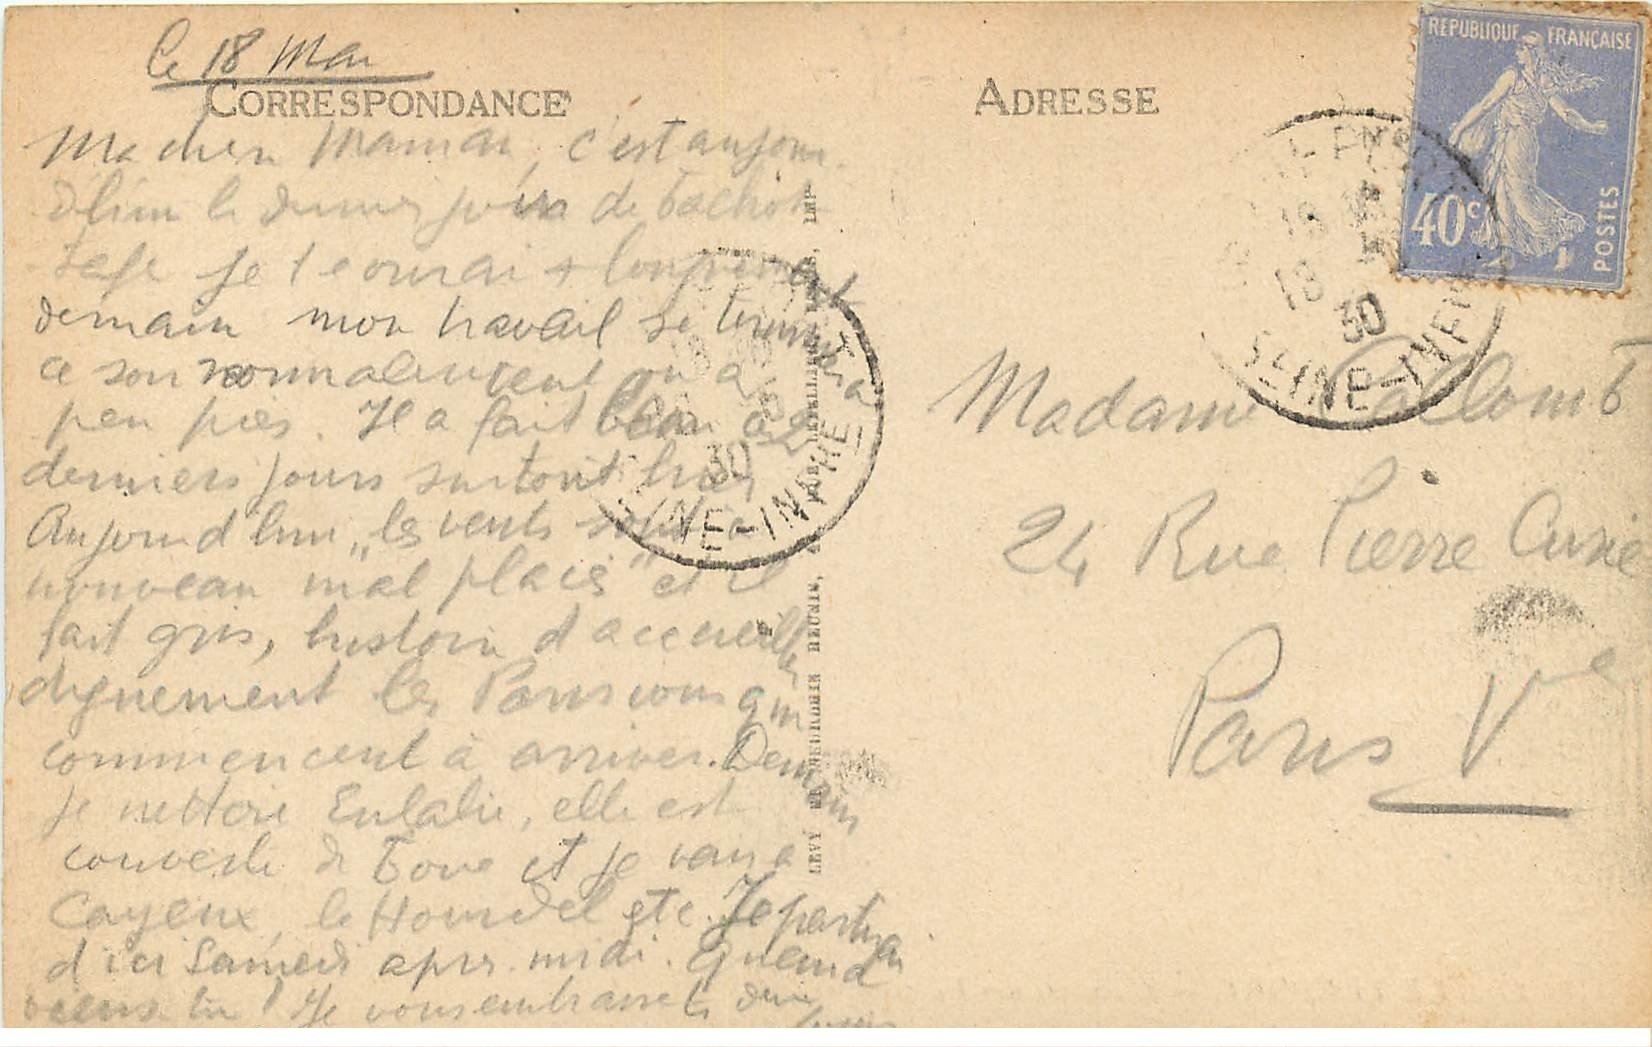 Le 18 Mai
CORRESPONDANCE
Ma chère Maman, c'est aujour
d'hui le dernier jour de bachot
tage je t'écrirai + longuement
demain mon travail se terminera
ce soir normalement ou à
peu près. Il a fait beau ces 2
derniers jours surtout hier
Aujourd'hui "les vents sont à
nouveau mal placés" et il
fait gris, histoire d'accueillir
dignement les Parisiens qui
commencent à arriver. Demain
je nettoie Eulalie, elle est
couverte de boue et je vais à
Cayeux, le Hourdel etc. Je partirai
d'ici Samedi après midi. Quand
viens tu ! Je vous embrasse
ADRESSE
REPUBLIQUE FRANÇAISE
40c
POSTES
18
30
SEINE-INFRE
Madame Collomb
24 Rue Pierre Curie
Paris Ve
30
SEINE-INFRE
LEVY ET NEURDEIN REUNIS, IMP.